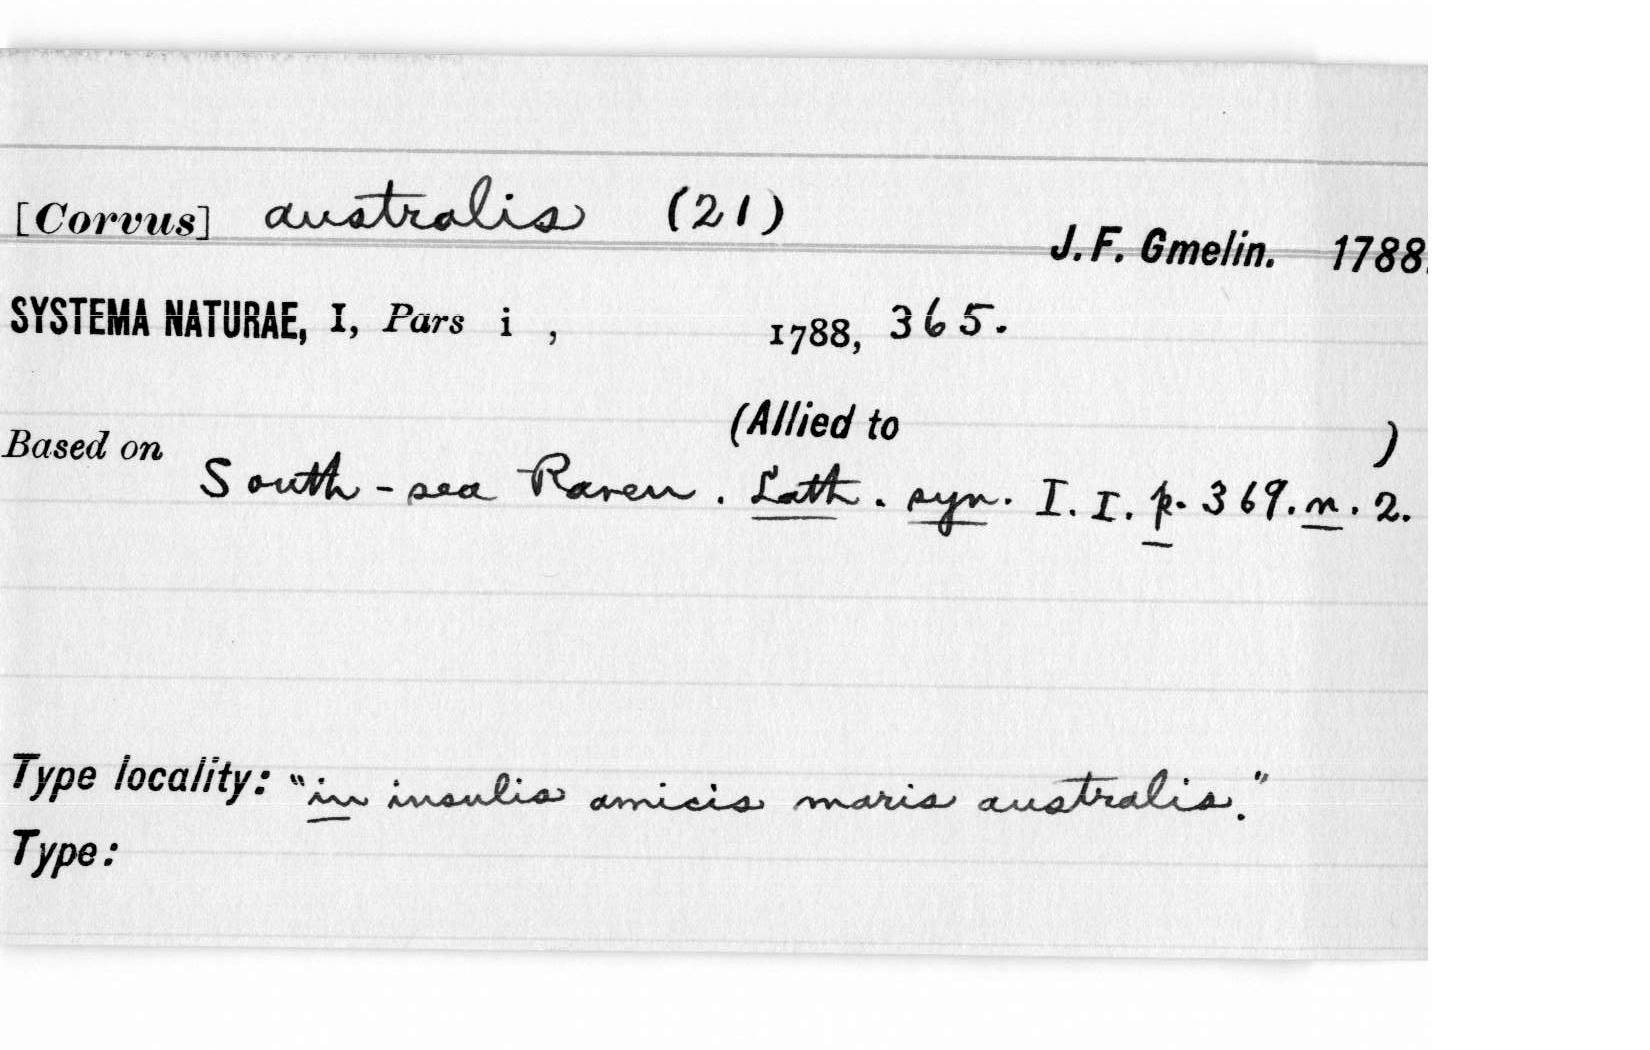 [Corvus] australis (21)
J. F. Gmelin. 1788.
SYSTEMA NATURAE, I, Pars i , 1788, 365.
(Allied to )
Based on South-sea Raven. Lath. syn. I. I. p. 369. n. 2.
Type locality: "in insulis amicis maris australis."
Type: